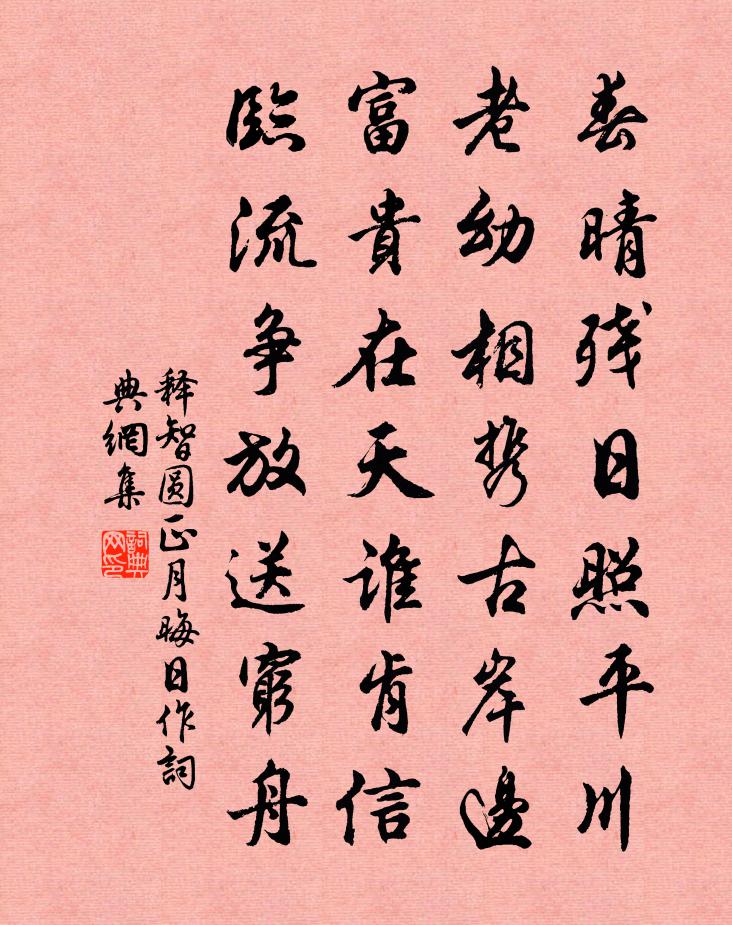 春晴残日照平川
老幼相携古岸邊
富貴在天誰肯信
臨流争放送窮舟
释智圆正月晦日作詞
典網集
詞典
网印